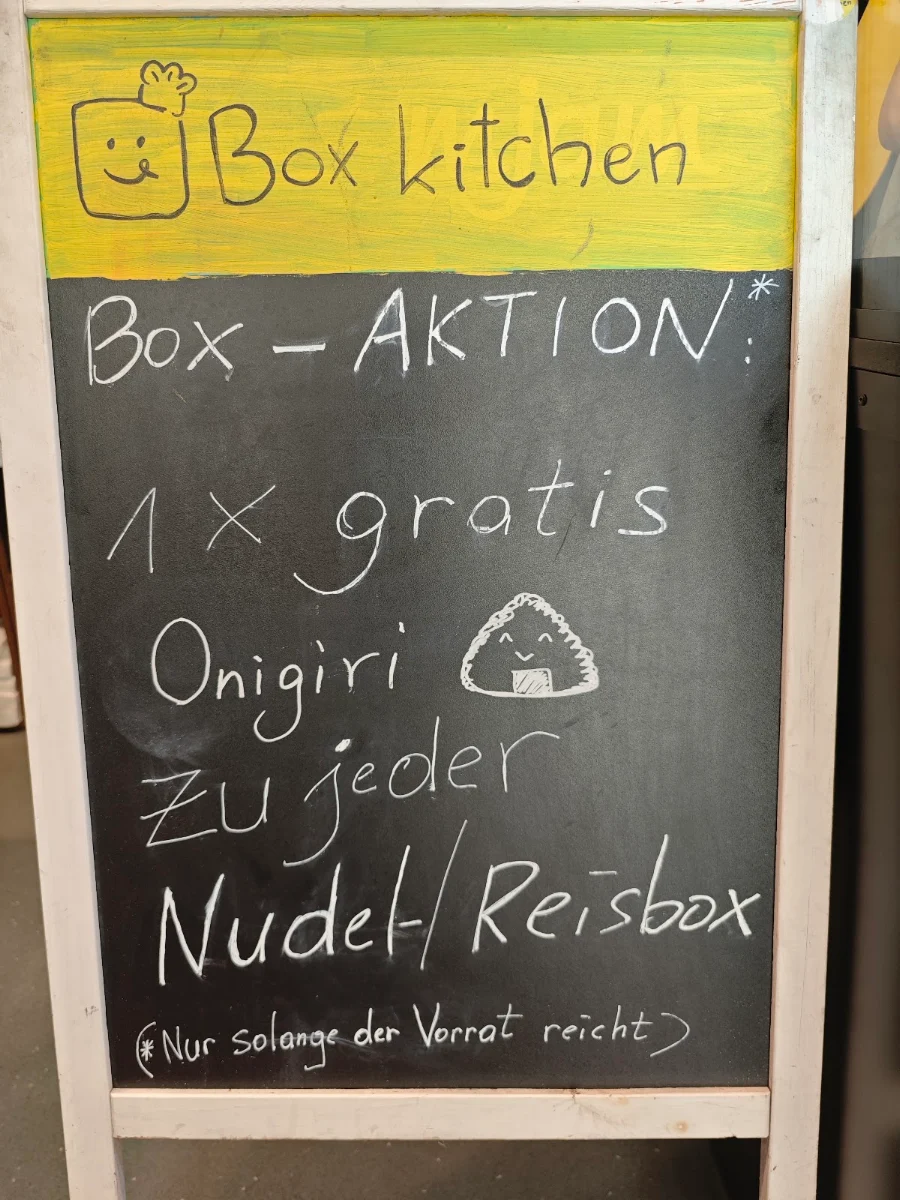 Box kitchen
Box – AKTION*:
1 x gratis
Onigiri
Zu jeder
Nudel-/Reisbox
(* Nur solange der Vorrat reicht)